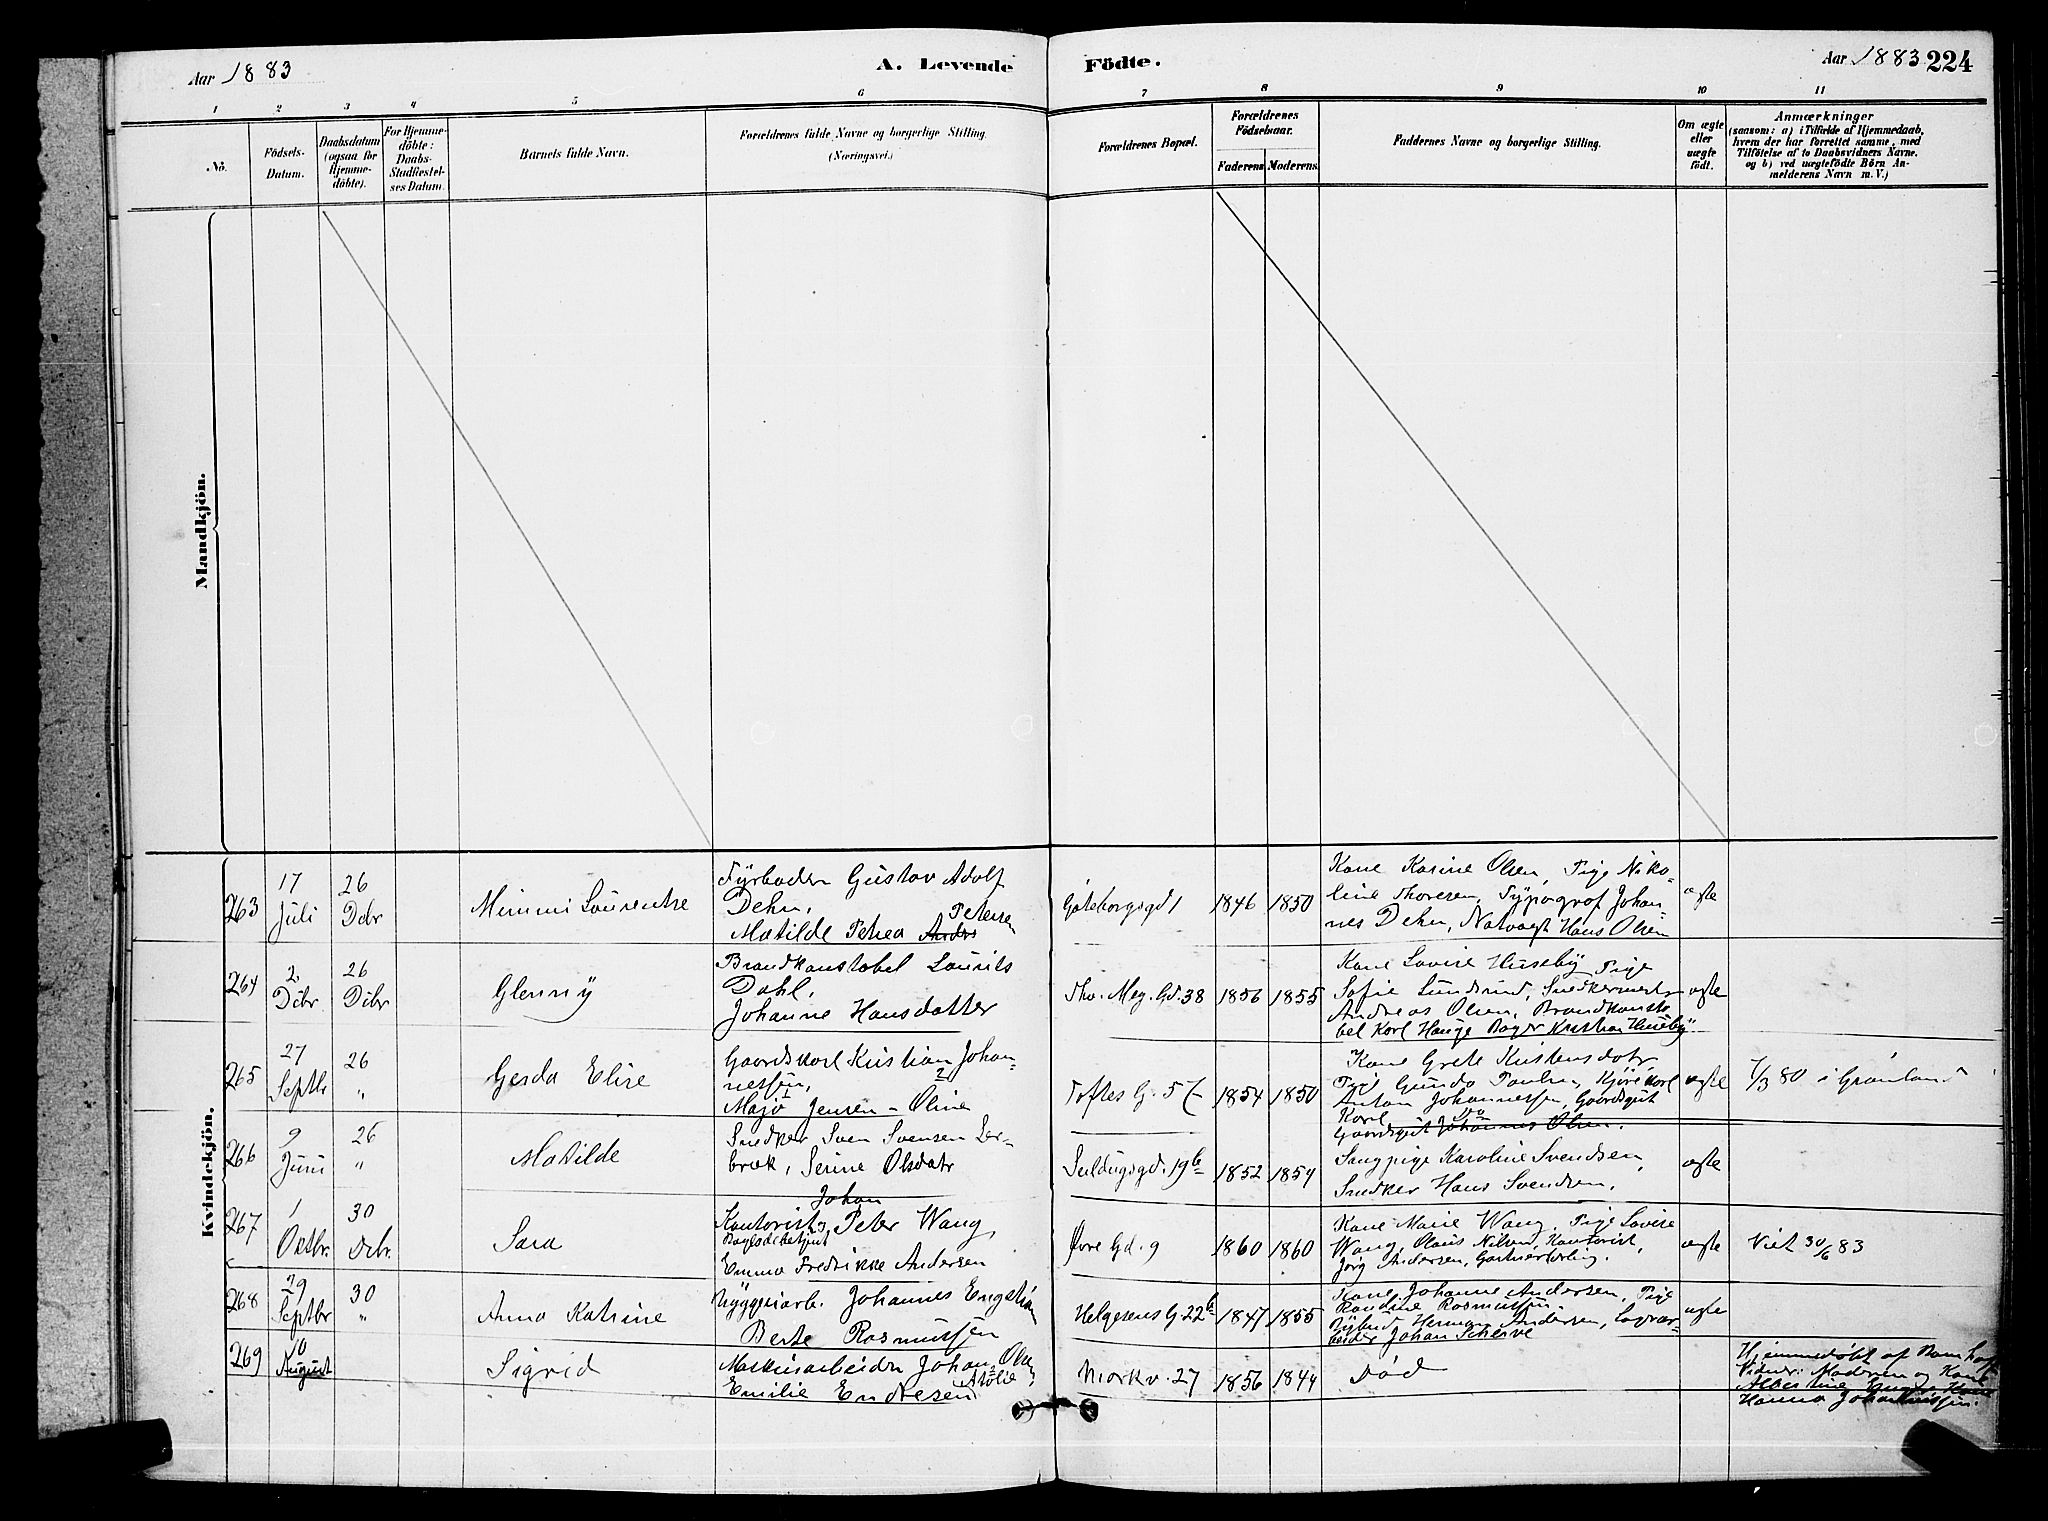 Aar 1883
A. Levende
Födte.
Aar 1883 224
1 2 3 4 5 6 7 8 9 10 11
No.
Födsels-
Datum.
Daabsdatum
(ogsaa for
Hjemme-
döbte).
For Hjemme-
döbte:
Daabs-
Stadfæstel-
ses Datum.
Barnets fulde Navn.
Forældrenes fulde Navne og borgerlige Stilling.
(Næringsvei.)
Forældrenes Bopæl.
Forældrenes
Födselsaar.
Faderens Moderens
Faddernes Navne og borgerlige Stilling.
Om ægte
eller
uægte
födt.
Anmærkninger
(saasom: a) i Tilfælde af Hjemmedaab,
hvem der har forrettet samme, med
Tilföielse af to Daabsvidners Navne,
og b) ved uægtefödte Börn An-
melderens Navn m. V.)
Mandkjön.
Kvindekjön.
263
17
Juli
26
Dcbr
Mimmi Laurentze
Fyrböder Gustav Adolf
Dehn,
Petersen
Matilde Petrea Anders
Göteborgsgd 1
1846 1850
Kone Karine Olsen, Pige Niko-
line Thoresen, Typograf Johan-
nes Dehn, Natvagt Hans Olsen
ægte
264
2
Dcbr
26
Dcbr
Glenny
Brandkonstabel Laurits
Dahl,
Johanne Hansdatter
Th. Mey. Gd. 38
1856 1855
Kone Lovise Huseby, Pige
Sofie Lundsrud, Snedkermest
Andreas Olsen, Brandkonsta-
bel Karl Hauge Bager Kristian Huseby
ægte
265
27
Septbr
26
"
Gerda Elise
Gaardskarl Kristian Johan-
nessen,
Maja Jensen - Oline
Toftes G. 5
1854 1850
Kone Grete Kristensdatr,
Pige Gunda Paulsen, Kjörekarl
Anton Johannessen, Gaardsgut
Karl do
Gaardsgut Johannes Olsen.
ægte
1/3 80 i Grönland
266
9
Juni
26
"
Matilde
Snedker Sven Svensen Ler-
bræk, Serine Olsdatr
Seildugsgd. 19b
1852 1854
Sangpige Karoline Svendsen,
Snedker Hans Svendsen,
ægte
267
1
Oktbr.
30
Dcbr.
Sara
Johan
Kontorist Peter Wang,
Emma Fredrikke Andersen
Övre Gd. 9
1860 1860
Kone Marie Wang, Pige Lovise
Wang, Olaus Nilsen, Kontorist,
Jörg Andersen, Gartnerlærling.
ægte
Viet 30/6 83
268
29
Septbr
30
"
Anna Katrine
Bryggeriarb. Johannes Engström
Berte Rasmussen
Helgesens G 22b
1847 1855
Kone Johanne Andersen, Pige
Randine Rasmussen,
Bybud Herman Andersen, Lagerar-
beider Johan Scheive
ægte
269
10
August
Sigrid
Maskinarbeider Johan Olsen,
Atalie
Emilie Endresen
Markv. 27
1856 1844
Död
Hjemmedöbt af Barnhoff
Vidner: Moderen og Kone
Albertine
Hanna Johannessen.